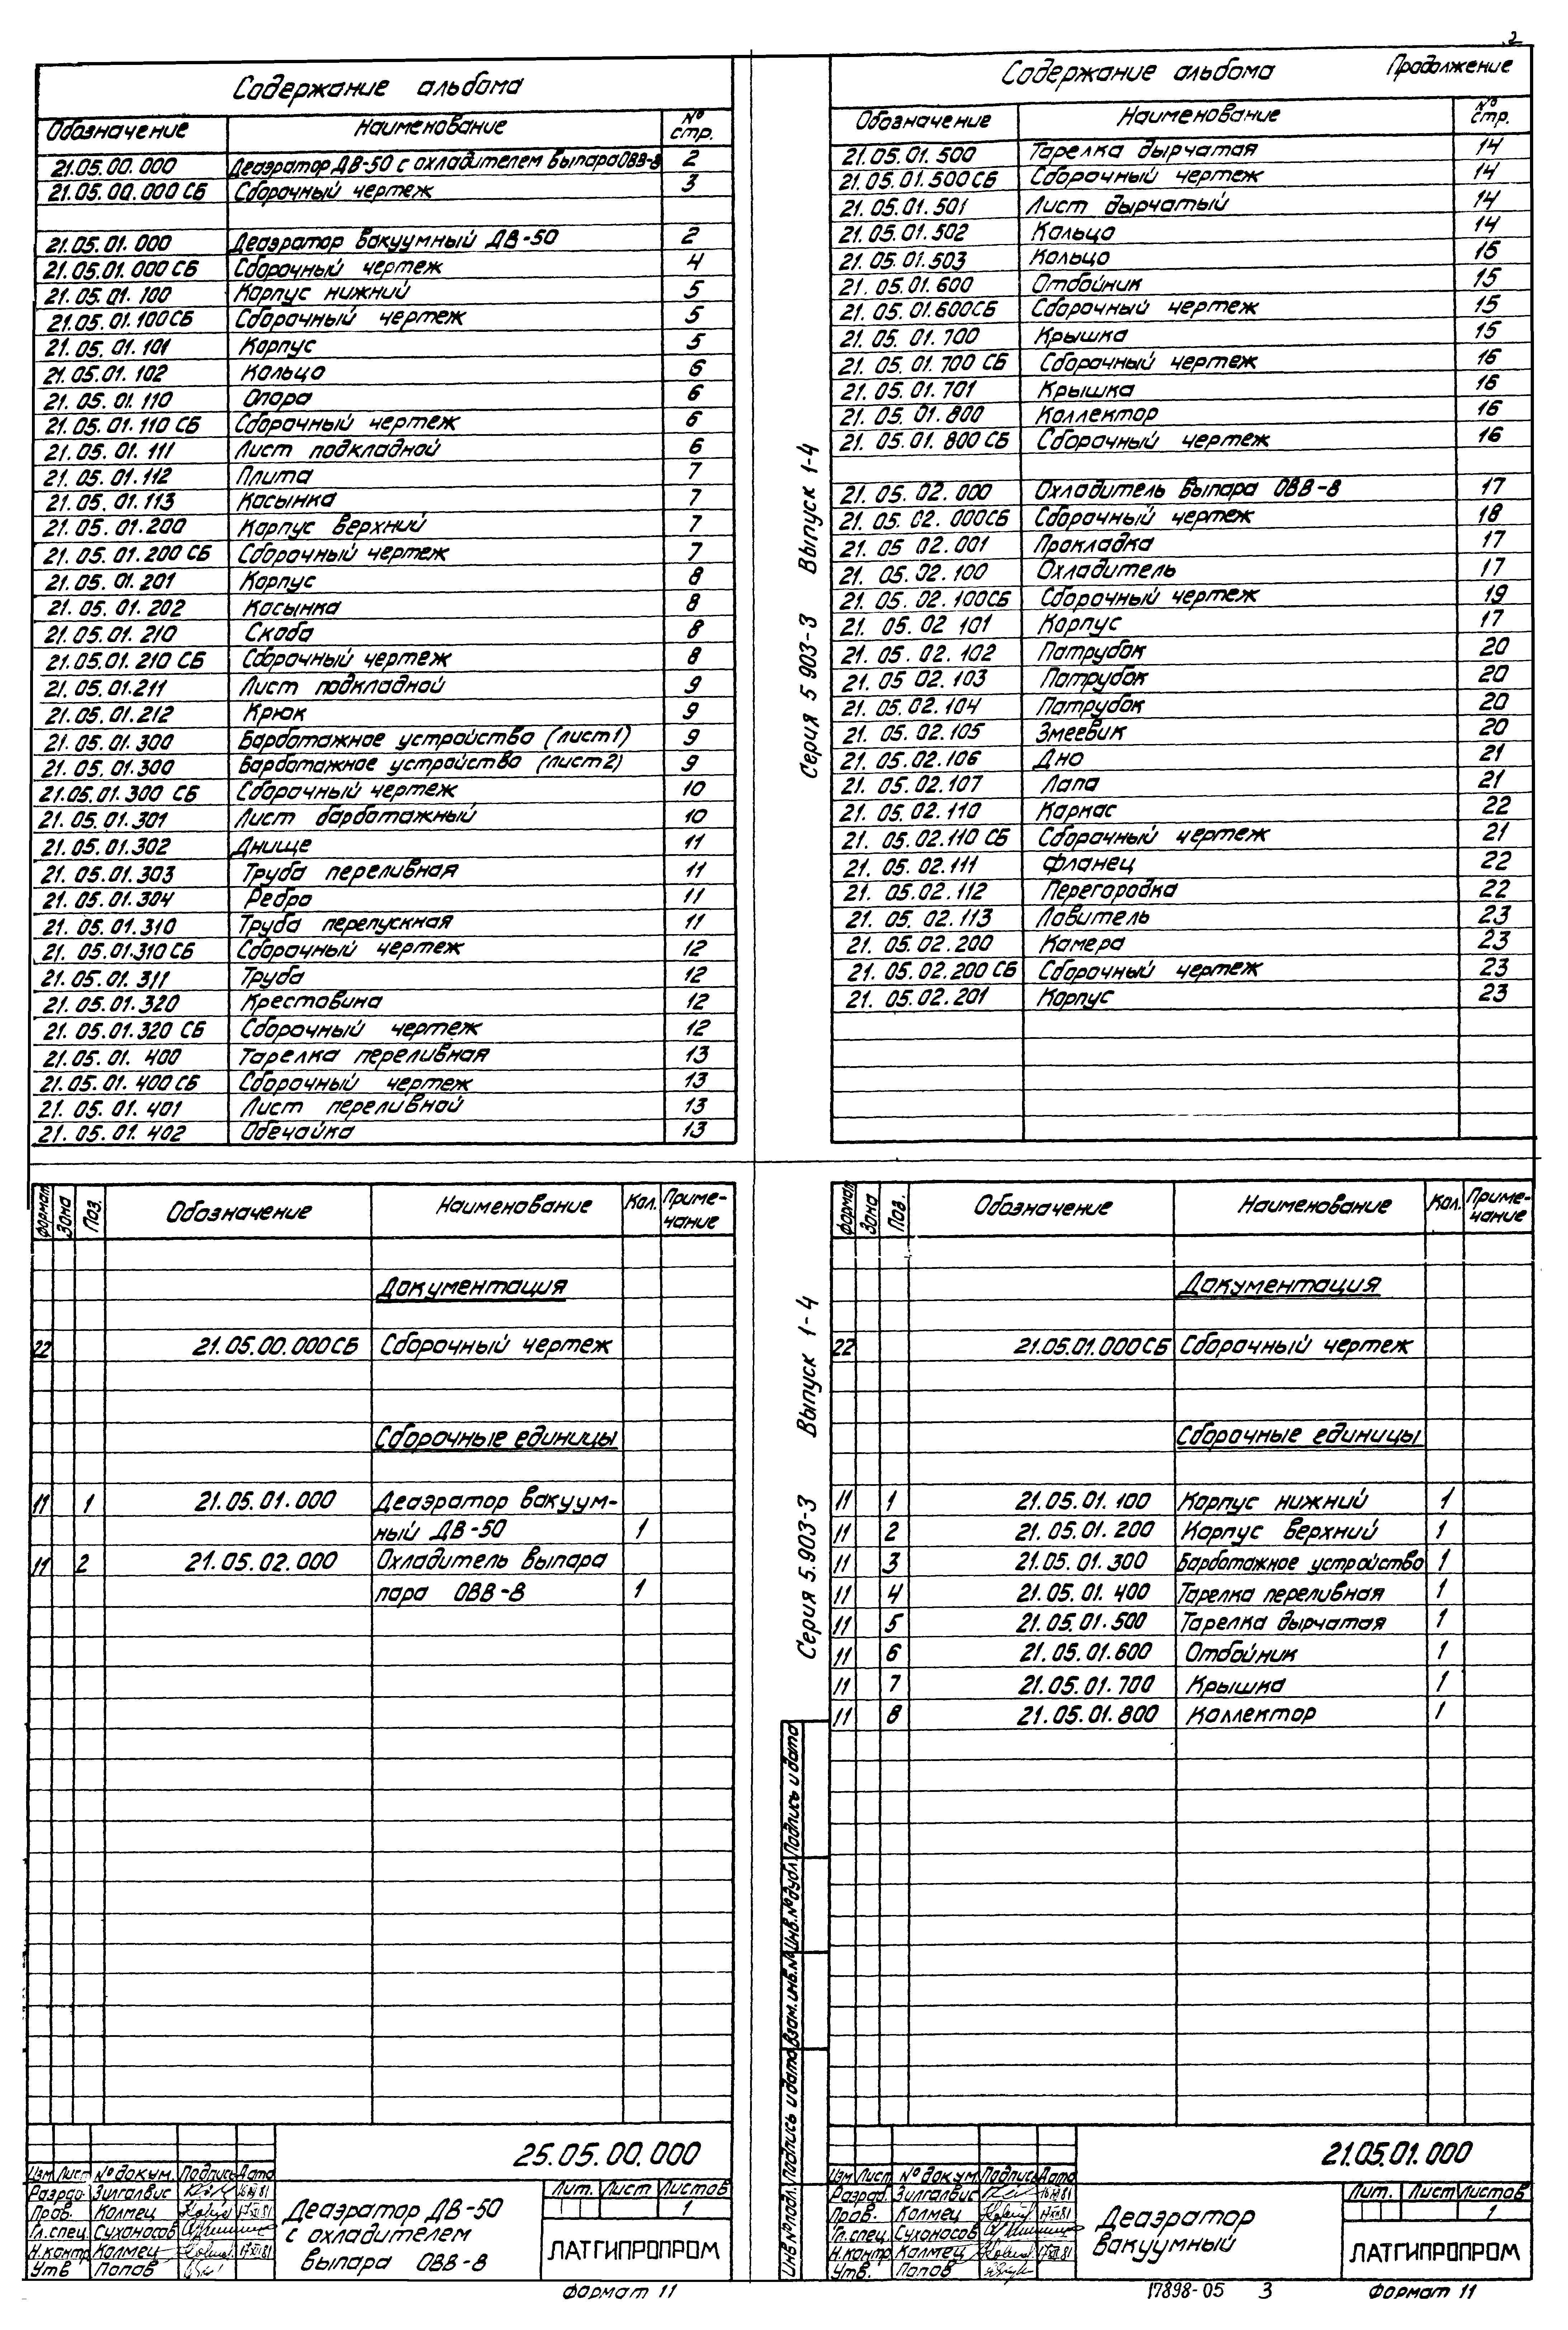 2
Содержание альбома
Обозначение Наименование № стр.
21.05.00.000 Деаэратор ДВ-50 с охладителем выпара ОВВ-8 2
21.05.00.000 СБ Сборочный чертеж 3
21.05.01.000 Деаэратор вакуумный ДВ-50 2
21.05.01.000 СБ Сборочный чертеж 4
21.05.01.100 Корпус нижний 5
21.05.01.100 СБ Сборочный чертеж 5
21.05.01.101 Корпус 5
21.05.01.102 Кольцо 6
21.05.01.110 Опора 6
21.05.01.110 СБ Сборочный чертеж 6
21.05.01.111 Лист подкладной 6
21.05.01.112 Плита 7
21.05.01.113 Косынка 7
21.05.01.200 Корпус верхний 7
21.05.01.200 СБ Сборочный чертеж 7
21.05.01.201 Корпус 8
21.05.01.202 Косынка 8
21.05.01.210 Скоба 8
21.05.01.210 СБ Сборочный чертеж 8
21.05.01.211 Лист подкладной 9
21.05.01.212 Крюк 9
21.05.01.300 Барботажное устройство (лист 1) 9
21.05.01.300 Барботажное устройство (лист 2) 9
21.05.01.300 СБ Сборочный чертеж 10
21.05.01.301 Лист барботажный 10
21.05.01.302 Днище 11
21.05.01.303 Труба переливная 11
21.05.01.304 Ребро 11
21.05.01.310 Труба перепускная 11
21.05.01.310 СБ Сборочный чертеж 12
21.05.01.311 Труба 12
21.05.01.320 Крестовина 12
21.05.01.320 СБ Сборочный чертеж 12
21.05.01.400 Тарелка переливная 13
21.05.01.400 СБ Сборочный чертеж 13
21.05.01.401 Лист переливной 13
21.05.01.402 Обечайка 13
Содержание альбома Продолжение
Обозначение Наименование № стр.
21.05.01.500 Тарелка дырчатая 14
21.05.01.500 СБ Сборочный чертеж 14
21.05.01.501 Лист дырчатый 14
21.05.01.502 Кольцо 14
21.05.01.503 Кольцо 15
21.05.01.600 Отбойник 15
21.05.01.600 СБ Сборочный чертеж 15
21.05.01.700 Крышка 15
21.05.01.700 СБ Сборочный чертеж 16
21.05.01.701 Крышка 16
21.05.01.800 Коллектор 16
21.05.01.800 СБ Сборочный чертеж 16
21.05.02.000 Охладитель выпара ОВВ-8 17
21.05.02.000 СБ Сборочный чертеж 18
21.05 02.001 Прокладка 17
21.05.02.100 Охладитель 17
21.05.02.100 СБ Сборочный чертеж 19
21.05.02 101 Корпус 17
21.05.02.102 Патрубок 20
21.05 02.103 Патрубок 20
21.05.02.104 Патрубок 20
21.05.02.105 Змеевик 20
21.05.02.106 Дно 21
21.05.02.107 Лапа 21
21.05.02.110 Каркас 22
21.05.02.110 СБ Сборочный чертеж 21
21.05.02.111 Фланец 22
21.05.02.112 Перегородка 22
21.05.02.113 Ловитель 23
21.05.02.200 Камера 23
21.05.02.200 СБ Сборочный чертеж 23
21.05.02.201 Корпус 23
Серия 5 903-3 Выпуск 1-4
Формат Зона Поз. Обозначение Наименование Кол. Примечание
Документация
22 21.05.00.000 СБ Сборочный чертеж
Сборочные единицы
11 1 21.05.01.000 Деаэратор вакуум-
ный ДВ-50 1
11 2 21.05.02.000 Охладитель выпара
пара ОВВ-8 1
25.05.00.000
Изм Лист № докум. Подпись Дата
Разраб. Зилгалвис
Пров. Колмец
Гл.спец. Сухоносов
Н.контр. Колмец
Утв Попов
Деаэратор ДВ-50
с охладителем
выпара ОВВ-8
Лит. Лист Листов
1
ЛАТГИПРОПРОМ
Формат 11
Серия 5.903-3 Выпуск 1-4
Формат Зона Поз. Обозначение Наименование Кол. Примечание
Документация
22 21.05.01.000 СБ Сборочный чертеж
Сборочные единицы
11 1 21.05.01.100 Корпус нижний 1
11 2 21.05.01.200 Корпус верхний 1
11 3 21.05.01.300 Барботажное устройство 1
11 4 21.05.01.400 Тарелка переливная 1
11 5 21.05.01.500 Тарелка дырчатая 1
11 6 21.05.01.600 Отбойник 1
11 7 21.05.01.700 Крышка 1
11 8 21.05.01.800 Коллектор 1
Инв № подл. Подпись и дата Взам. инв. № Инв. № дубл. Подпись и дата
21.05.01.000
Изм Лист № докум. Подпись Дата
Разраб. Зилгалвис
Пров. Колмец
Гл.спец. Сухоносов
Н.контр. Колмец
Утв. Попов
Деаэратор
вакуумный
Лит. Лист Листов
1
ЛАТГИПРОПРОМ
17898-05 3 Формат 11